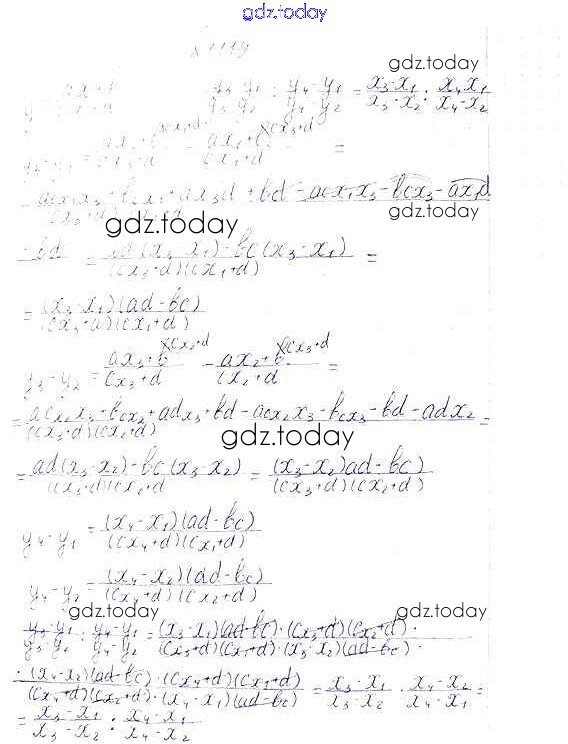 gdz.today
№ 1119
gdz.today
y = (ax+b)/(cx+d) (y₃-y₁)/(y₃-y₂) : (y₄-y₁)/(y₄-y₂) = (x₃-x₁)/(x₃-x₂) : (x₄-x₁)/(x₄-x₂)
y₃-y₁ = (ax₃+b)/(cx₃+d) - (ax₁+b)/(cx₁+d) =
= (acx₁x₃+bcx₁+ax₃d+bd-acx₁x₃-bcx₃-ax₁d
gdz.today
gdz.today
-bd)/((cx₃+d)(cx₁+d)) = (ad(x₃-x₁)-bc(x₃-x₁))/((cx₃+d)(cx₁+d)) =
= ((x₃-x₁)(ad-bc))/((cx₃+d)(cx₁+d))
gdz.today
y₃-y₂ = (ax₃+b)/(cx₃+d) - (ax₂+b)/(cx₂+d) =
= (acx₂x₃+bcx₂+adx₃+bd-acx₂x₃-bcx₃-bd-adx₂)/((cx₃+d)(cx₂+d)) =
gdz.today
= (ad(x₃-x₂)-bc(x₃-x₂))/((cx₃+d)(cx₂+d)) = ((x₃-x₂)ad-bc)/((cx₃+d)(cx₂+d))
y₄-y₁ = ((x₄-x₁)(ad-bc))/((cx₄+d)(cx₁+d))
y₄-y₂ = ((x₄-x₂)(ad-bc))/((cx₄+d)(cx₂+d))
gdz.today
gdz.today
(y₃-y₁)/(y₃-y₂) : (y₄-y₁)/(y₄-y₂) = ((x₃-x₁)(ad-bc)·(cx₃+d)(cx₂+d))/((cx₃+d)(cx₁+d)·(x₃-x₂)(ad-bc)) ·
· ((x₄-x₂)(ad-bc)·(cx₄+d)(cx₁+d))/((cx₄+d)(cx₂+d)·(x₄-x₁)(ad-bc)) = (x₃-x₁)/(x₃-x₂) · (x₄-x₂)/(x₄-x₁) =
= (x₃-x₁)/(x₃-x₂) : (x₄-x₁)/(x₄-x₂)
gdz.today